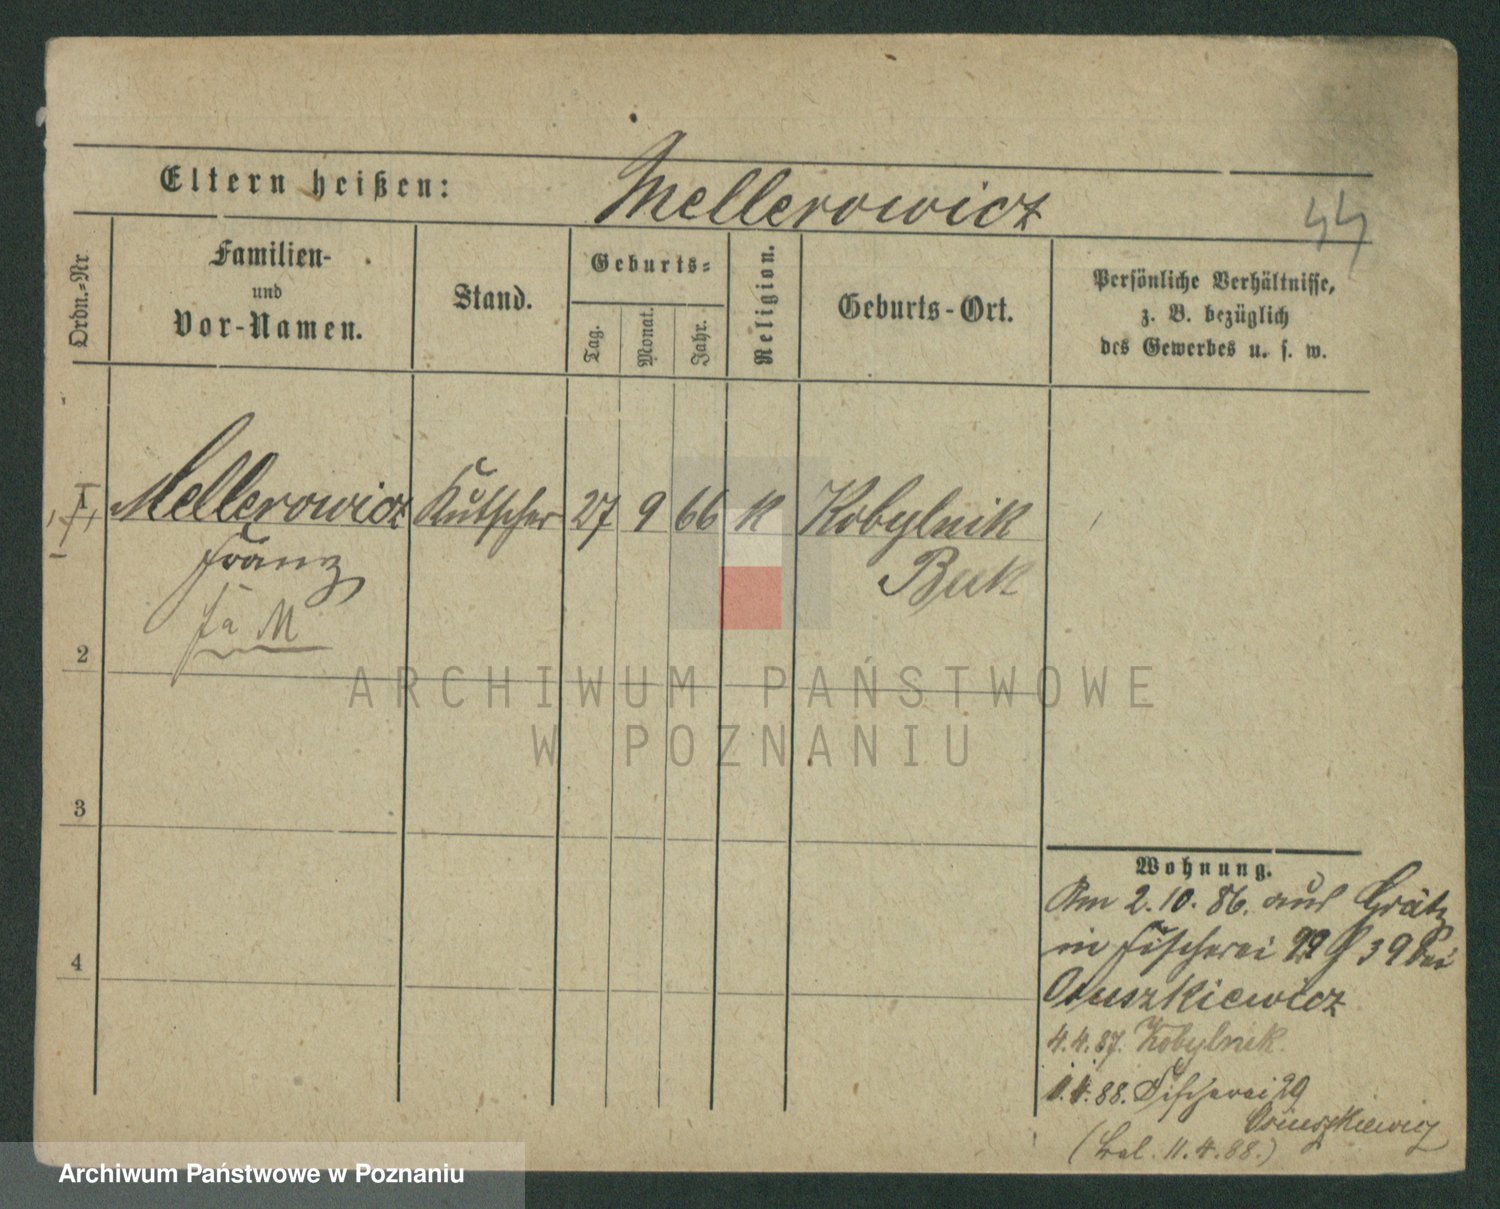 Eltern heißen: Mellerowicz
44
Ordn.-Nr
Familien-
und
Vor-Namen.
Stand.
Geburts-
Tag.
Monat.
Jahr.
Religion.
Geburts-Ort.
Persönliche Verhältnisse,
z. B. bezüglich
des Gewerbes u. s. w.
1 Mellerowicz Kutscher 27 9 66 K Kobylnik
Franz
Buk
2
3
4
Wohnung.
Am 2.10.86. aus Grätz
in Fischerei 39 bei
4.4.87. Kobylnik
1.4.88. Fischerei 29
Osiuszkiewicz
11.4.88.)
ARCHIWUM PAŃSTWOWE
W POZNANIU
Archiwum Państwowe w Poznaniu